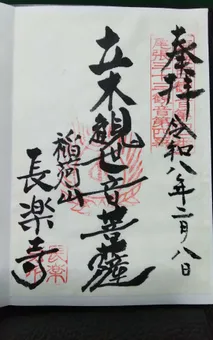 奉拝
令和八年二月八日
立木観世音菩薩
稲荷山
長楽寺